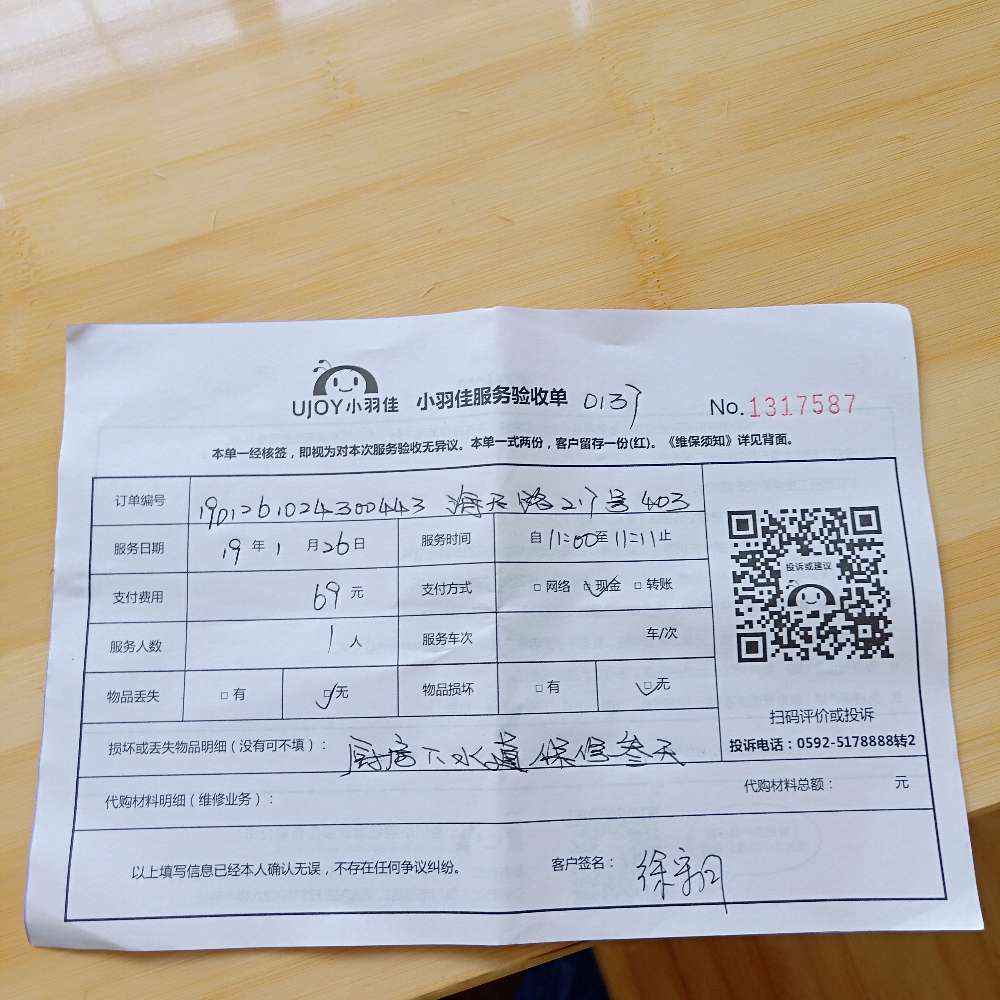 UJOY小羽佳 小羽佳服务验收单 No.1317587
本单一经核签，即视为对本次服务验收无异议。本单一式两份，客户留存一份(红)。《维保须知》详见背面。
订单编号 1901261024300443 海天路217号403
服务日期 19年1月26日 服务时间 自11:00至11:11止
支付费用 69元 支付方式 □网络 □现金 □转账
服务人数 1人 服务车次 车/次
物品丢失 □有 □无 物品损坏 □有 □无
投诉或建议
扫码评价或投诉
投诉电话：0592-5178888转2
损坏或丢失物品明细（没有可不填）： 厨房下水道保修叁天
代购材料明细（维修业务）： 代购材料总额： 元
以上填写信息已经本人确认无误，不存在任何争议纠纷。 客户签名： 徐